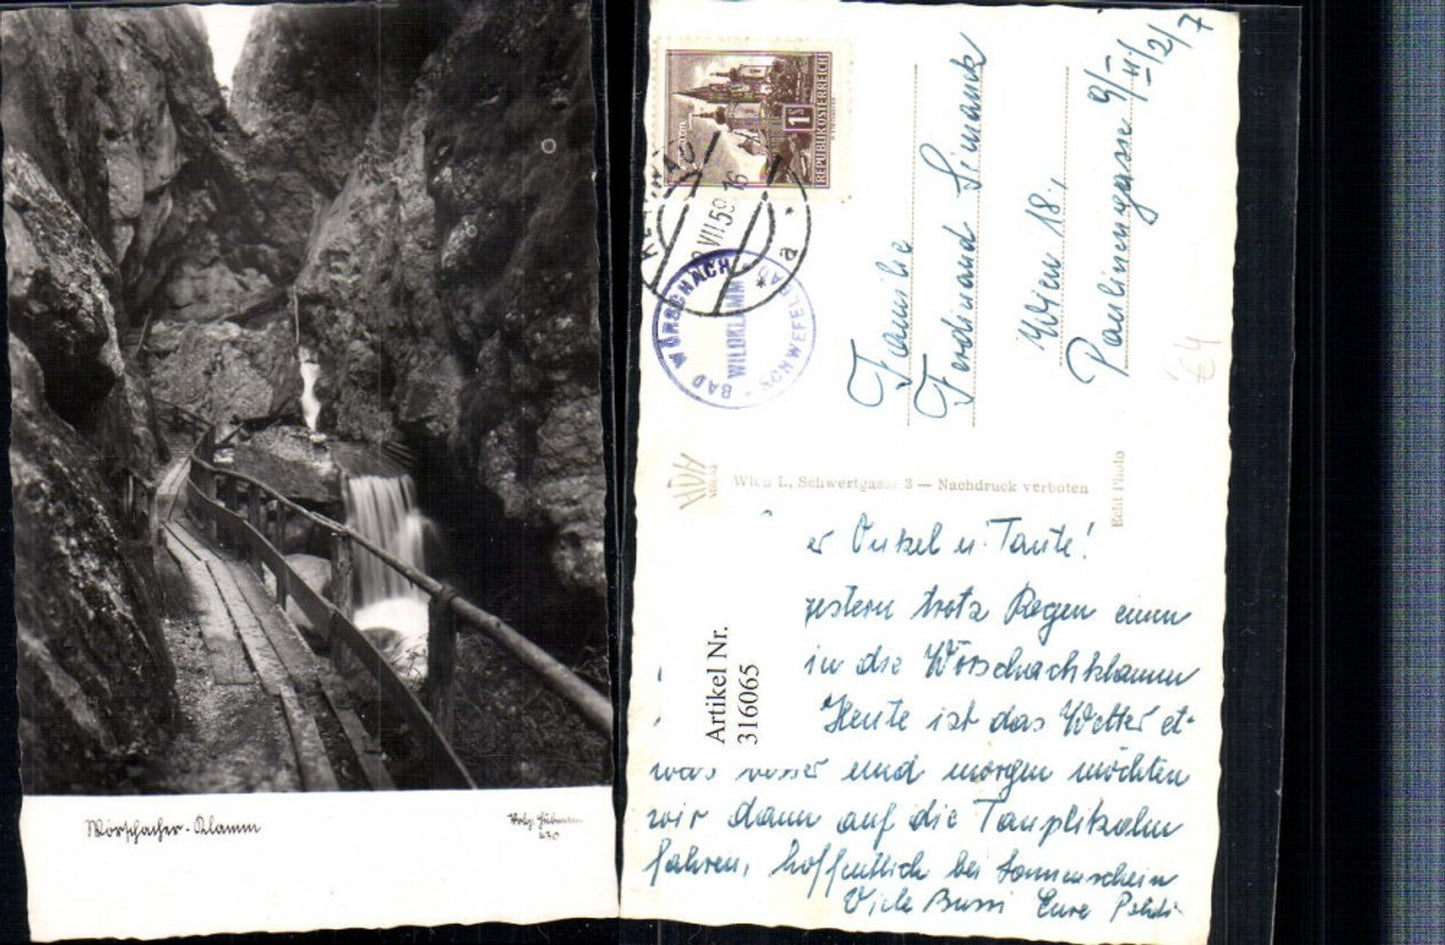 Wörschacher-Klamm
430
REPUBLIK ÖSTERREICH
1S
VII 59 16
a
BAD WÖRSCHACH
WILDKLAMM
SCHWEFELBAD
Familie
Ferdinand Simanek
Wien 18.,
Paulinengasse 9/II/2/7
€4
HDH
VERLAG
Wien I., Schwertgasse 3 — Nachdruck verboten
Echt Photo
er Onkel u. Tante!
gestern trotz Regen einen
in die Wörschachklamm
Heute ist das Wetter et-
was besser und morgen möchten
wir dann auf die Tauplitzalm
fahren, hoffentlich bei Sonnenschein
Viele Bussi Eure
Artikel Nr.
316065